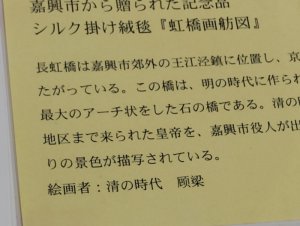 嘉興市から贈られた記念品
シルク掛け絨毯『虹橋画舫図』
長虹橋は嘉興市郊外の王江涇鎮に位置し、京
たがっている。この橋は、明の時代に作られ
最大のアーチ状をした石の橋である。清の
地区まで来られた皇帝を、嘉興市役人が出
りの景色が描写されている。
絵画者：清の時代　顾梁